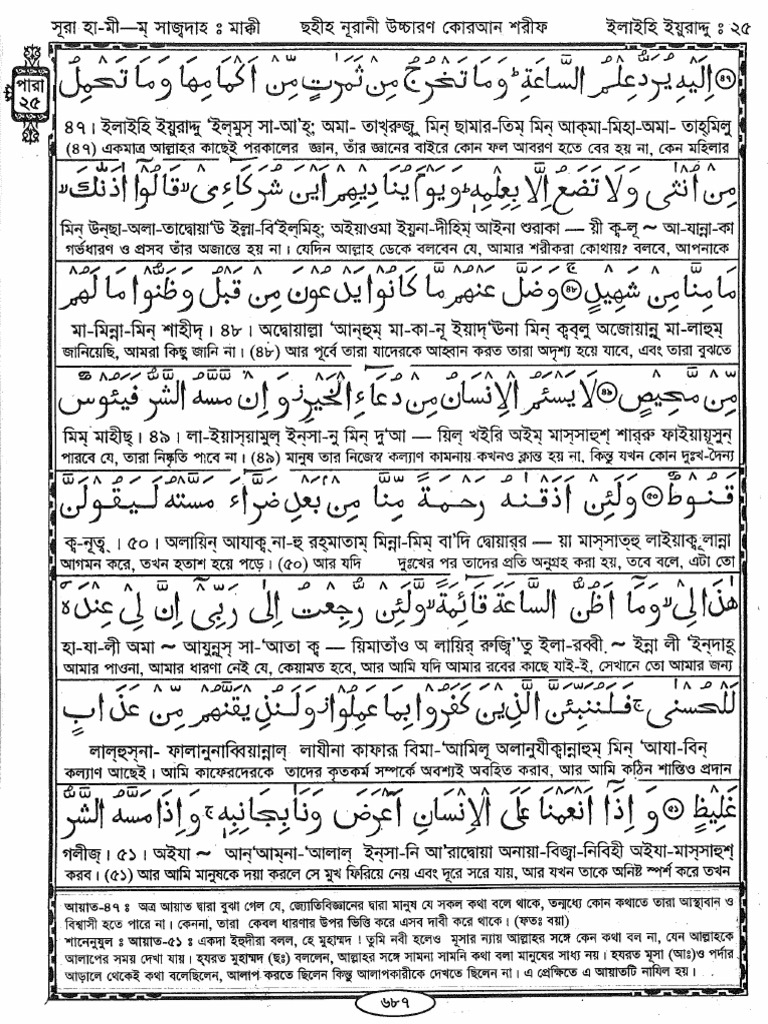 সূরা হা-মী—ম্ সাজ্বদাহ : মাক্কী ছহীহ নূরানী উচ্চারণ কোরআন শরীফ ইলাইহি ইয়ুরাদ্দু : ২৫
পারা
২৫
﴿٤٧﴾ اِلَيْهِ يُرَدُّ عِلْمُ السَّاعَةِ ؕ وَمَا تَخْرُجُ مِنْ ثَمَرٰتٍ مِّنْ اَكْمَامِهَا وَمَا تَحْمِلُ
৪৭। ইলাইহি ইয়ুরাদ্দু 'ইল্মুস্ সা-'আ'হ্; অমা- তাখ্রুজু মিন্ ছামার-তিম্ মিন্ আক্মা-মিহা-অমা- তাহ্মিলু
(৪৭) একমাত্র আল্লাহর কাছেই পরকালের জ্ঞান, তাঁর জ্ঞানের বাইরে কোন ফল আবরণ হতে বের হয় না, কেন মহিলার
مِنْ اُنْثٰى وَلَا تَضَعُ اِلَّا بِعِلْمِهٖ ؕ وَيَوْمَ يُنَادِيْهِمْ اَيْنَ شُرَكَآءِىْ ۙ قَالُوْٓا اٰذَنّٰكَ ۙ
মিন্ উন্ছা-অলা-তাদ্বোয়া'উ ইল্লা-বি'ইল্মিহ্; অইয়াওমা ইয়ুনা-দীহিম্ আইনা শুরাকা — য়ী ক্ব-লূ ~ আ-যান্না-কা
গর্ভধারণ ও প্রসব তাঁর অজান্তে হয় না। যেদিন আল্লাহ ডেকে বলবেন যে, আমার শরীকরা কোথায়? বলবে, আপনাকে
مَا مِنَّا مِنْ شَهِيْدٍ ۚ ﴿٤٨﴾ وَضَلَّ عَنْهُمْ مَّا كَانُوْا يَدْعُوْنَ مِنْ قَبْلُ وَظَنُّوْا مَا لَهُمْ
মা-মিন্না-মিন্ শাহীদ্। ৪৮। অদ্বোয়াল্লা 'আন্হুম্ মা-কা-নূ ইয়াদ্'ঊনা মিন্ ক্বব্লু অজোয়ান্নূ মা-লাহুম্
জানিয়েছি, আমরা কিছু জানি না। (৪৮) আর পূর্বে তারা যাদেরকে আহ্বান করত তারা অদৃশ্য হয়ে যাবে, এবং তারা বুঝতে
مِّنْ مَّحِيْصٍ ﴿٤٩﴾ لَا يَسْـَٔمُ الْاِنْسَانُ مِنْ دُعَآءِ الْخَيْرِ ز وَاِنْ مَّسَّهُ الشَّرُّ فَيَـُٔوْسٌ
মিম্ মাহীছ্। ৪৯। লা-ইয়াস্য়ামুল্ ইন্সা-নু মিন্ দু'আ — য়িল্ খইরি অইম্ মাস্সাহুশ্ শার্রু ফাইয়ায়ূসুন্
পারবে যে, তারা নিষ্কৃতি পাবে না। (৪৯) মানুষ তার নিজেস্ব কল্যাণ কামনায় কখনও ক্লান্ত হয় না, কিন্তু যখন কোন দুঃখ-দৈন্য
قَنُوْطٌ ﴿٥٠﴾ وَلَئِنْ اَذَقْنٰهُ رَحْمَةً مِّنَّا مِنْ بَعْدِ ضَرَّآءَ مَسَّتْهُ لَيَقُوْلَنَّ
ক্বনূত্ব্। ৫০। অলায়িন্ আযাক্ব্না-হু রহ্মাতাম্ মিন্না-মিম্ বা'দি দ্বোয়ার্র — য়া মাস্সাত্হু লাইয়াক্বূলান্না
আগমন করে, তখন হতাশ হয়ে পড়ে। (৫০) আর যদি দুঃখের পর তাদের প্রতি অনুগ্রহ করা হয়, তবে বলে, এটা তো
هٰذَا لِيْ ۙ وَمَآ اَظُنُّ السَّاعَةَ قَآئِمَةً ۙ وَّلَئِنْ رُّجِعْتُ اِلٰى رَبِّيْٓ اِنَّ لِيْ عِنْدَهٗ
হা-যা-লী অমা ~ আযুন্নুস্ সা-'আতা ক্ব — য়িমাতাঁও অ লায়ির্ রুজ্বি''তু ইলা-রব্বী ~ ইন্না লী 'ইন্দাহূ
আমার পাওনা, আমার ধারণা নেই যে, কেয়ামত হবে, আর আমি যদি আমার রবের কাছে যাই-ই, সেখানে তো আমার জন্য
لَلْحُسْنٰى ۚ فَلَنُنَبِّئَنَّ الَّذِيْنَ كَفَرُوْا بِمَا عَمِلُوْا ز وَلَنُذِيْقَنَّهُمْ مِّنْ عَذَابٍ
লাল্হুস্না- ফালানুনাব্বিয়ান্নাল্ লাযীনা কাফারূ বিমা-'আমিলূ অলানুযীক্বান্নাহুম্ মিন্ 'আযা-বিন্
কল্যাণ আছেই। আমি কাফেরদেরকে তাদের কৃতকর্ম সম্পর্কে অবশ্যই অবহিত করাব, আর আমি কঠিন শাস্তিও প্রদান
غَلِيْظٍ ﴿٥١﴾ وَاِذَآ اَنْعَمْنَا عَلَى الْاِنْسَانِ اَعْرَضَ وَنَاٰ بِجَانِبِهٖ ۚ وَاِذَا مَسَّهُ الشَّرُّ
গলীজ্। ৫১। অইযা ~ আন্'আম্না-'আলাল্ ইন্সা-নি আ'রাদ্বোয়া অনায়া-বিজ্বা-নিবিহী অইযা-মাস্সাহুশ্
করব। (৫১) আর আমি মানুষকে দয়া করলে সে মুখ ফিরিয়ে নেয় এবং দূরে সরে যায়, আর যখন তাকে অনিষ্ট স্পর্শ করে তখন
আয়াত-৪৭ : অত্র আয়াত দ্বারা বুঝা গেল যে, জ্যোতিবিজ্ঞানের দ্বারা মানুষ যে সকল কথা বলে থাকে, তন্মধ্যে কোন কথাতে তারা আস্থাবান ও
বিশ্বাসী হতে পারে না। কেননা, তারা কেবল ধারণার উপর ভিত্তি করে এসব দাবী করে থাকে। (ফতঃ বয়া)
শানেনুযুল : আয়াত-৫১ : একদা ইহুদীরা বলল, হে মুহাম্মদ ! তুমি নবী হলেও মূসার ন্যায় আল্লাহর সঙ্গে কেন কথা বল না, যেন আল্লাহকে
আলাপের সময় দেখা যায়। হযরত মুহাম্মদ (ছঃ) বললেন, আল্লাহর সঙ্গে সামনা সামনি কথা বলা মানুষের সাধ্য নয়। হযরত মূসা (আঃ)ও পর্দার
আড়ালে থেকেই কথা বলেছিলেন, আলাপ করতে ছিলেন কিন্তু আলাপকারীকে দেখতে ছিলেন না। এ প্রেক্ষিতে এ আয়াতটি নাযিল হয়।
৬৮৭